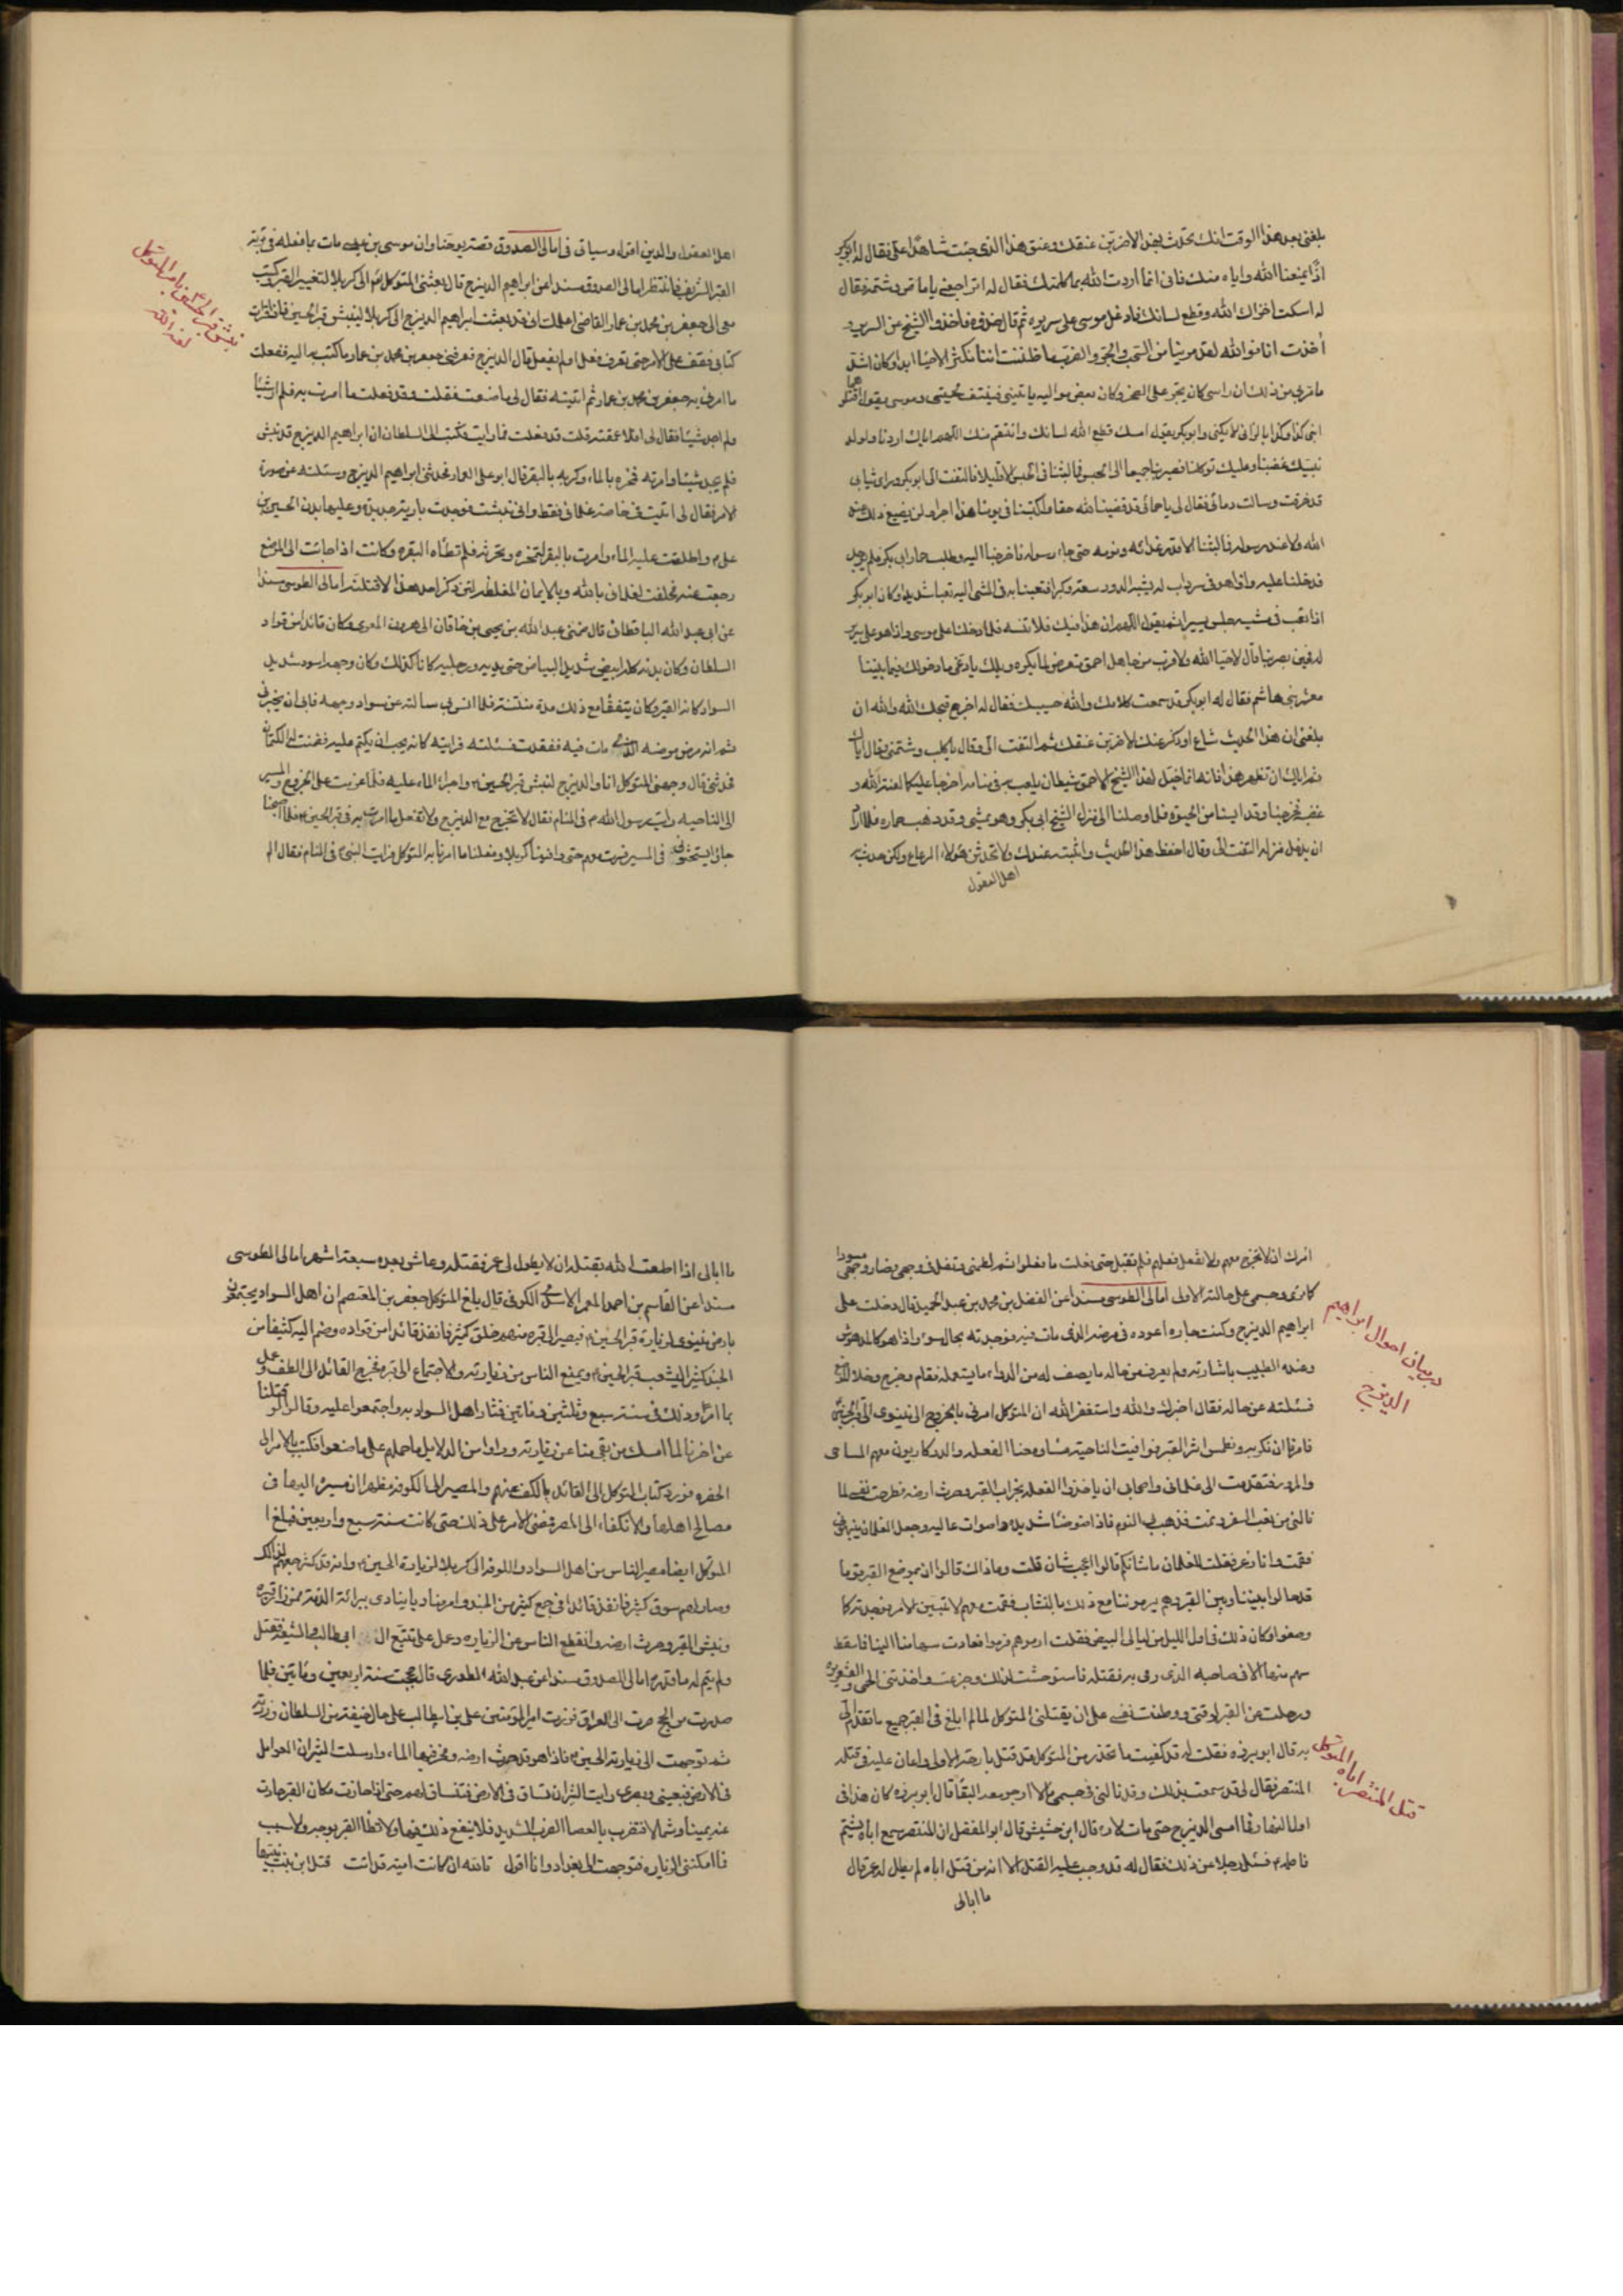 بلغنى بعد هذا الوقت انك تحدث بهذا لاضربن عنقك وعنق هذا الذى جئت به شاهدا على فقال له ابو بكر
اذا يمنعنا الله واياه منك فانى انما اردت الله بما كلمتك فقال له اتراجعنى يا ماص وشتمه فقال
له اسكت اخزاك الله وقطع لسانك فادغل موسى على سريره ثم قال خذوه فاخذوا الشيخ عن السرير و
اخذت انا فوالله لقد مر بنا من السحب والجر والضرب ما ظننت اننا لا نكثر الاحياء ابدا وكان اشد
ما مر بى من ذلك ان راسى كان يجر على الصخر وكان بعض مواليه ياتينى فينتف لحيتى وموسى يقول اقتلوهما
ابنى كذا وكذا بالزانى لا يكنى وابو بكر يقول له امسك قطع الله لسانك وانتقم منك اللهم اياك اردنا ولولد
نبيك غضبنا وعليك توكلنا فصير بنا جميعا الى الحبس فما لبثنا فى الحبس الا قليلا فالتفت الى ابو بكر وراى ثيابى
قد خرقت وسالت دمائى فقال لى يا حمانى قد قضينا لله حقا واكتسبنا فى يومنا هذا اجرا ولن يضيع ذلك عند
الله ولا عند رسوله فما لبثنا الا قدر غدائه ونومه حتى جاء رسوله فاخرجنا اليه وطلب حمار ابى بكر فلم يوجد
فدخلنا عليه واذا هو فى سرداب له يشبه الدور سعة وكبرا فتعبنا به فى المشى اليه تعبا شديدا وكان ابو بكر
اذا تعب فى مشيه جلس يسيرا ثم يقول اللهم ان هذا فيك فلا تنسه فلما دخلنا على موسى واذا هو على سرير
له فحين بصر بنا قال لا حيا الله ولا قرب من جاهل احمق متعرض لما يكره ويلك يا دعى ما دخولك فيما بيننا
معشر بنى هاشم فقال له ابو بكر قد سمعت كلامك والله حسيبك فقال له اخرج قبحك الله والله ان
بلغنى ان هذا الحديث شاع او ذكر عنك لاضربن عنقك ثم التفت الى وقال يا كلب وشتمنى وقال اياك
ثم اياك ان تظهر هذا فانه انما خيل لهذا الشيخ الاحمق شيطان يلعب به فى منامه اخرجا عليكما لعنة الله و
غضبه فخرجنا وقد ايسنا من الحيوة فلما وصلنا الى منزل الشيخ ابى بكر وهو يمشى وقد ذهب حماره فلما اراد
ان يدخل منزله التفت الى وقال احفظ هذا الحديث واثبته عندك ولا تحدثن هؤلاء الرعاع ولكن حدث به
اهل العقول
اهل العقول والدين اقول وسياتى فى امالى الصدوق قصة يوحنا وان موسى بن عيسى مات بما فعله فى تربة
القبر الشريف فانتظر امالى الصدوق مسندا عن ابراهيم الديزج قال بعثنى المتوكل الى كربلا لتغيير القبر وكتب
معى الى جعفر بن محمد بن عمار القاضى اعلمك انى قد بعثت ابراهيم الديزج الى كربلا لينبش قبر الحسين فاذا قرات
كتابى فقف على الامر حتى تعرف فعل او لم يفعل قال الديزج فعرفنى جعفر بن محمد بن عمار ما كتب به اليه ففعلت
ما امرنى به جعفر بن محمد بن عمار ثم اتيته فقال لى ما صنعت فقلت قد فعلت ما امرت به فلم ار شيئا
ولم اجد شيئا فقال لى افلا عمقته قلت قد فعلت فما رايت فكتب الى السلطان ان ابراهيم الديزج قد نبش
فلم يجد شيئا وامرته فمخره بالماء وكربه بالبقر قال ابو على العمارى فحدثنى ابراهيم الديزج وسئلته عن صورة
الامر فقال لى اتيت فى خاصة غلمانى فقط وانى نبشت فوجدت بارية جديدة وعليها بدن الحسين بن
على م واطلقت عليه الماء وامرت بالبقر لتمخره وتحرثه فلم تطأه البقر وكانت اذا جائت الى الموضع
رجعت عنه فحلفت لغلمانى بالله وبالايمان المغلظة لئن ذكر احد هذا لاقتلنه امالى الطوسى مسندا
عن ابى عبد الله الباقطانى قال ضمنى عبد الله بن يحيى بن خاقان الى هرون المعرى وكان قائدا من قواد
السلطان وكان بدنه كله ابيض شديد البياض حتى يديه ورجليه كانا كذلك وكان وجهه اسود شديد
السواد كانه القير وكان يتفقا مع ذلك مدة منتنة فلما انس بى سالته عن سواد وجهه فابى ان يخبرنى
ثم انه مرض مرضه الذى مات فيه فقعدت فسئلته فرايته كانه يحب ان يكتم عليه فضمنت له الكتمان
فحدثنى قال وجهنى المتوكل انا والديزج لنبش قبر الحسين واجراء الماء عليه فلما عزمت على الخروج والمسير
الى الناحيه رايت رسول الله م فى المنام فقال لا تخرج مع الديزج ولا تفعل ما امرتم به فى قبر الحسين فلما اصبحنا
جائوا يستحثونى فى المسير فسرت معهم حتى وافينا كربلا وفعلنا ما امرنا به المتوكل فرايت النبى فى المنام فقال الم
نبش قبر الحسين بامر المتوكل
لعنه الله
امرك ان لا تخرج معهم ولا تفعل فعلهم فلم تقبل حتى فعلت ما فعلوا ثم لطمنى وتفل فى وجهى فصار وجهى مسودا
كما ترى وجسمى على حالته الاولى امالى الطوسى مسندا عن الفضل بن محمد بن عبد الحميد قال دخلت على
ابراهيم الديزج وكنت جاره اعوده فى مرضه الذى مات فيه فوجدته بحال سوء واذا هو كالمدهوش
وعنده الطبيب
فسئلته عن حاله فقال اخبرك والله واستغفر الله ان المتوكل امرنى بالخروج الى نينوى الى قبر الحسين
فامرنا ان نكربه ونطمس اثر القبر فوافيت الناحية مساء ومعنا الفعله والدركاريون معهم المساحى
والمرور فتقدمت الى غلمانى واصحابى ان ياخذوا الفعله بخراب القبر وحرث ارضه فطرحت نفسى لما
نالنى من تعب السفر ونمت فذهب بى النوم فاذا ضوضاء شديدة واصوات عالية وجعل الغلمان ينبهونى
فقمت وانا ذعر فقلت للغلمان ما شانكم قالوا اعجب شان قلت وما ذاك قالوا ان بموضع القبر قوما
قد حالوا بيننا وبين القبر وهم يرموننا مع ذلك بالنشاب فقمت معهم لاتبين الامر فوجدته كما
وصفوا وكان ذلك فى اول الليل من ليالى البيض فقلت ارموهم فرموا فعادت سهامنا الينا فما سقط
سهم منها الا فى صاحبه الذى رمى به فقتله فاستوحشت لذلك وجزعت واخذتنى الحمى والقشعريره
ورحلت عن القبر لوقتى ووطنت نفسى على ان يقتلنى المتوكل لما لم ابلغ فى القبر جميع ما تقدم الى
به قال ابو بريره فقلت له قد كفيت ما تحذر من المتوكل قد قتل بارحة الاولى واعان عليه فى قتله
المنتصر فقال لى قد سمعت بذلك وقد نالنى فى جسمى ما لا ارجو معه البقا قال ابو بريره كان هذا فى
اول النهار فما امسى الديزج حتى مات قال ابن خشيش قال ابو المفضل ان المنتصر سمع اباه يشتم
فاطمه م فسئل رجلا عن ذلك فقال له قد وجب عليه القتل الا انه من قتل اباه لم يطل له عمر قال
ما ابالى
در بيان احوال ابراهيم
الديزج
قتل المنتصر اباه المتوكل
ما ابالى اذا اطعت الله بقتله ان لا يطول لى عمر فقتله وعاش بعده سبعة اشهر امالى الطوسى
مسندا عن القاسم بن احمد المعمر الاسدى الكوفى قال بلغ المتوكل جعفر بن المعتصم ان اهل السواد يجتمعون
بارض نينوى لزيارة قبر الحسين فيصير الى قبره منهم خلق كثير فانفذ قائدا من قواده وضم اليه كثيفا من
الجند كثيرا ليشعب قبر الحسين ويمنع الناس من زيارته والاجتماع الى قبره فخرج القائد الى الطف وعمل
بما امر وذلك فى سنة سبع وثلثين ومائتين فثار اهل السواد به واجتمعوا عليه وقالوا لو قتلنا
عن اخرنا لما امسك من بقى منا عن زيارته وراوا من الدلايل ما حملهم على ما صنعوا فكتب بالامر الى
الحضره فورد كتاب المتوكل الى القائد بالكف عنهم والمصير الى الكوفه مظهرا ان مسيره اليها فى
مصالح اهلها والانكفاء الى المصر فمضى الامر على ذلك حتى كانت سنة سبع واربعين فبلغ
المتوكل ايضا مصير الناس من اهل السواد والكوفه الى كربلا لزيارة الحسين وانه قد كثر جمعهم لذلك
وصار لهم سوق كثير فانفذ قائدا فى جمع كثير من الجند وامر مناديا ينادى ببرائة الذمة ممن زار قبره
ونبش القبر وحرث ارضه وانقطع الناس عن الزياره وعمل على تتبع ال ابى طالب والشيعه فقتل
ولم يتم له ما قدره امالى الصدوق مسندا عن عبد الله الطورى قال حججت سنة اربعين ومائتين فلما
صدرت من الحج صرت الى العراق فزرت امير المؤمنين على بن ابيطالب على حال خيفة من السلطان وزرته
ثم توجهت الى زيارة الحسين فاذا هو قد حرث ارضه ومخر فيها الماء وارسلت الثيران العوامل
فى الارض فبعينى وبصرى رايت الثيران تساق فى الارض فتنساق لهم حتى اذا حازت مكان القبر حادت
عنه يمينا وشمالا فتضرب بالعصا الضرب الشديد فلا ينفع ذلك فيها ولا تطأ القبر بوجه ولا سبب
فما امكننى الزياره فتوجهت الى بغداد وانا اقول تالله ان كانت امية قد اتت قتل ابن بنت نبيها